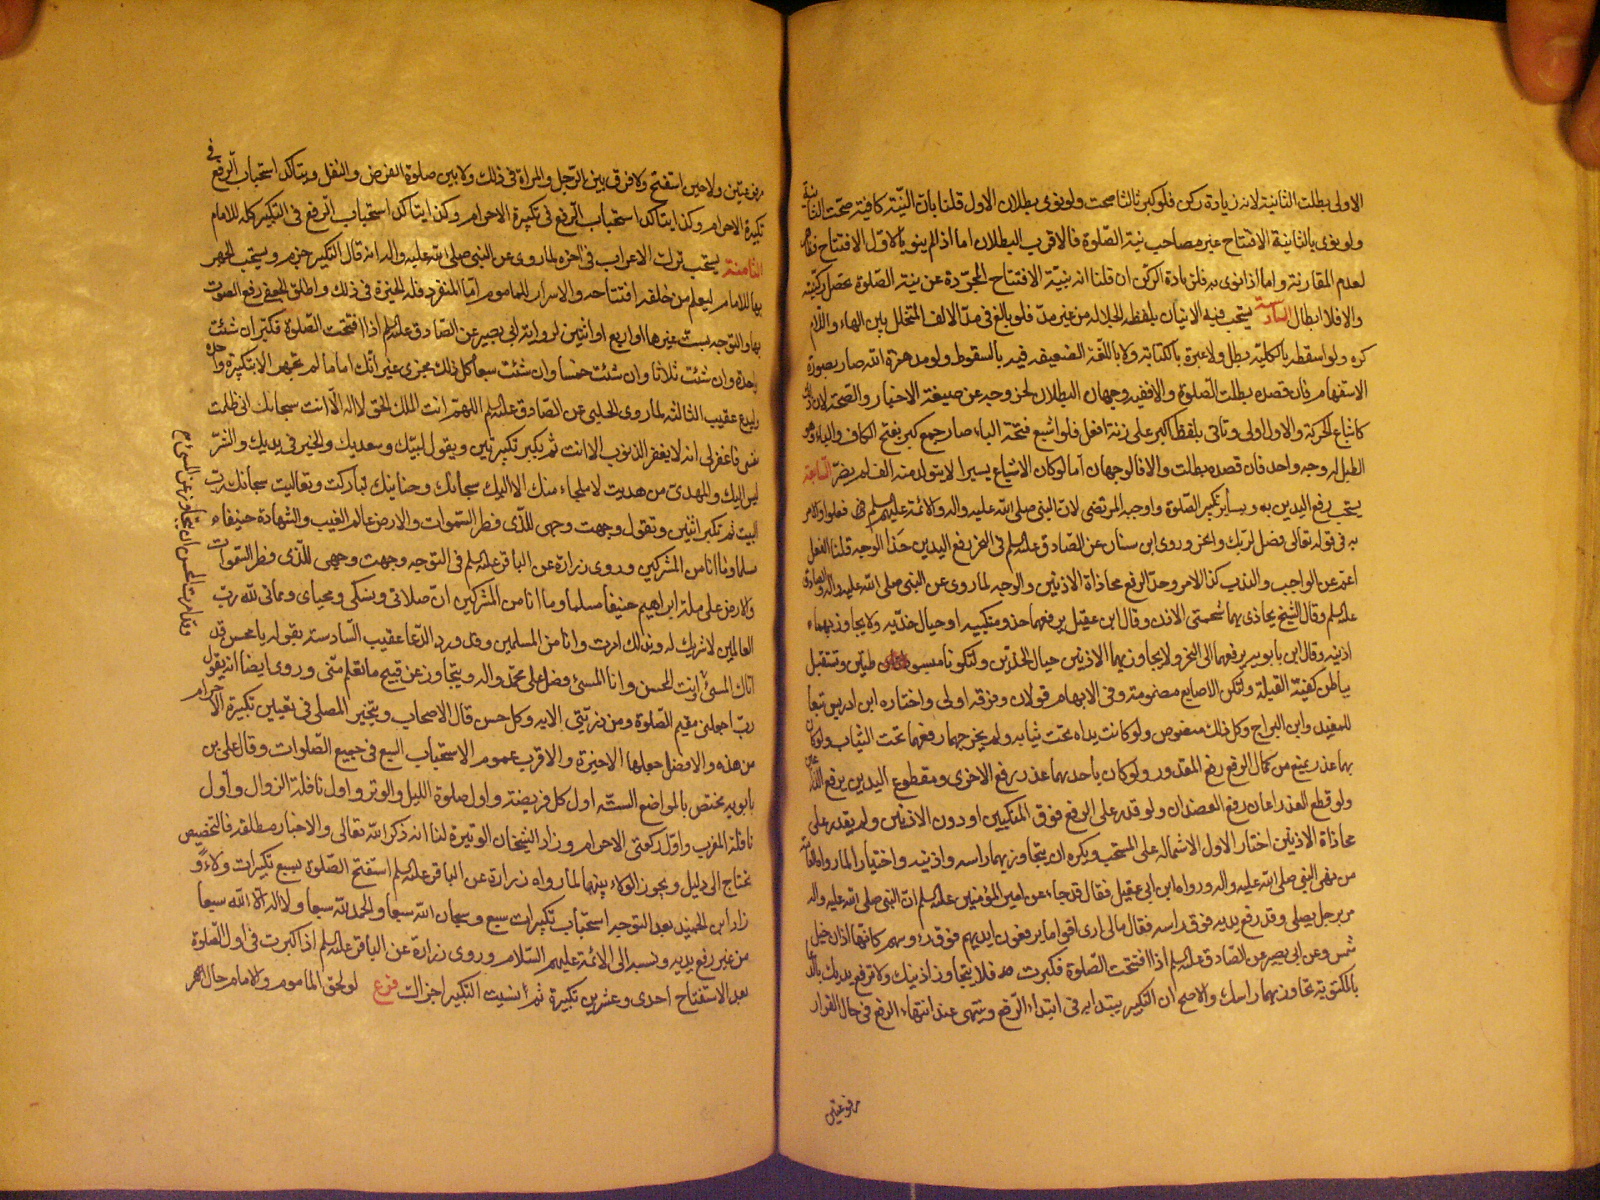 الاولى بطلت الثانية لانه زيادة ركن فلو كبر ثالثا صحت ولو نوى بطلان الاول قلنا بان النية كافية صحت الثانية
ولو نوى بالثانية الافتتاح غير مصاحب نية الصلوة فالاقرب البطلان اما اذا لم ينو بالاول الافتتاح
لعدم المقارنة واما اذا نوى به فلزيادة الركن ان قلنا انه بنية الافتتاح المجردة عن نية الصلوة تحصل ركنيته
والا فلا ابطال السادسة يستحب فيه الاتيان بلفظ الجلالة من غير مد فلو بالغ في مد الالف المتخلل بين الهاء واللام
كره ولو اسقطه بالكلية بطل ولا عبرة بالكتابة ولا باللغة الضعيفة فيه بالسقوط ولو مد همزة الله صار بصورة
الاستفهام فان قصده بطلت الصلوة والا ففيه وجهان البطلان لخروجه عن صيغة الاخبار والصحة لان ذلك
كاشباع الحركة والاول اولى وتاتى بلفظ اكبر على زنة افعل فلو اشبع فتحة الباء صار جمع كبر بفتح الكاف والباء وهو
الطبل له وجه واحد فان قصده بطلت والا فالوجهان اما لو كان الاشباع يسيرا لا يتولد منه الف لم يضر السابعة
يستحب رفع اليدين به وبسائر تكبير الصلوة واوجبه المرتضى لان النبى صلى الله عليه واله والائمة عليهم السلم فعلوا والامر
به في قوله تعالى فصل لربك وانحر وروى ابن سنان عن الصادق عليه السلم في النحر رفع اليدين حذا الوجه قلنا الفعل
اعم من الواجب والندب كذا الامر وحد الرفع محاذاة الاذنين والوجه لما روى عن النبى صلى الله عليه واله والصادق
عليه السلم وقال الشيخ يحاذى بهما شحمتى الاذن وقال ابن عقيل يرفعهما حذو منكبيه او حيال خديه ولا يجاوز بهما
اذنيه وقال ابن بابويه يرفعهما الى النحر ولا يجاوز بهما الاذنين حيال الخدين ولتكونا مبسوطتين وتستقبل
بباطن كفيه القبلة ولتكن الاصابع مضمومة وفى الابهام قولان وفرقه اولى واختاره ابن ادريس تبعا
للمفيد وابن البراج وكل ذلك منصوص ولو كانت يداه تحت ثيابه ولم يخرجهما رفعهما تحت الثياب ولو كان
بهما عذر يمنع من كمال الرفع رفع المقدور ولو كان باحديهما عذر رفع الاخرى ومقطوع اليدين يرفع الذراعين
ولو قطع الذراعان رفع العضدان ولو قدر على الرفع فوق المنكبين او دون الاذنين ولم يقدر على
محاذاة الاذنين اختار الاول لاشتماله على المستحب ويكره ان يتجاوز بهما راسه واذنيه واختيار لما رواه العامة
من نهى النبى صلى الله عليه واله ورواه ابن ابى عقيل فقال قد جاء عن امير المؤمنين عليه السلم ان النبى صلى الله عليه واله
مر برجل يصلى وقد رفع يديه فوق راسه فقال مالى ارى اقواما يرفعون ايديهم فوق رؤسهم كانها اذان خيل
شمس وعن ابى بصير عن الصادق عليه السلم اذا افتتحت الصلوة فكبرت فلا يتجاوز اذنيك ولا ترفع يديك بالدعاء
بالمكتوبة تجاوز بهما راسك والاصح ان التكبير يبتدا به في ابتداء الرفع وينتهى عند انتهاء الرفع في حال القرار
مرفوعتين
مرفوعتين ولا حين استفتح ولا فرق بين الرجل والمراة في ذلك ولا بين صلوة الفرض والنفل ويتاكد استحباب الرفع في
تكبيرة الاحرام وكذا يتاكد استحباب الرفع في تكبيرة الاحرام وكذا يتاكد استحباب الرفع في التكبير كله للامام
الثامنة يستحب ترك الاعراب في اخره لما روى عن النبى صلى الله عليه واله انه قال التكبير جزم ويستحب الجهر
بها للامام ليعلم من خلفه افتتاحه والاسرار للماموم اما المنفرد فله الخيرة في ذلك واطلق الجعفى رفع الصوت
بها والتوجه بست غيرها او اربع او اثنين لرواية ابى بصير عن الصادق عليه السلم اذا افتتحت الصلوة فكبر ان شئت
واحدة وان شئت ثلاثا وان شئت خمسا وان شئت سبعا كل ذلك مجزى غير انك اماما لم تجهر الا بتكبيرة واحدة
وليدع عقيب الثالثة لما روى الحلبى عن الصادق عليه السلم اللهم انت الملك الحق لا اله الا انت سبحانك انى ظلمت
نفسى فاغفر لى انه لا يغفر الذنوب الا انت ثم يكبر تكبيرتين ويقول لبيك وسعديك والخير في يديك والشر
ليس اليك والمهدى من هديت لا ملجاء منك الا اليك سبحانك وحنانيك تباركت وتعاليت سبحانك رب
البيت ثم تكبر اثنتين وتقول وجهت وجهى للذى فطر السموات والارض عالم الغيب والشهادة حنيفا
مسلما وما انا من المشركين وروى زرارة عن الباقر عليه السلم في التوجه وجهت وجهى للذى فطر السموات
والارض على ملة ابراهيم حنيفا مسلما وما انا من المشركين ان صلاتى ونسكى ومحياى ومماتى لله رب
العالمين لا شريك له وبذلك امرت وانا من المسلمين وقد ورد الدعا عقيب السادسة بقوله يا محسن قد
اتاك المسئ وانت المحسن وانا المسئ فصل على محمد واله وتجاوز عن قبيح ما تعلم منى وروى ايضا انه يقول
رب اجعلنى مقيم الصلوة ومن ذريتى الاية وكل حسن قال الاصحاب ويتخير المصلى في تعيين تكبيرة الاحرام
من هذه والافضل جعلها الاخيرة والاقرب عموم الاستحباب السبع في جميع الصلوات وقال على بن
بابويه يختص بالمواضع الستة اول كل فريضة واول صلوة الليل والوتر واول نافلة الزوال واول
نافلة المغرب واول ركعتى الاحرام وزاد الشيخان الوتيرة لنا انه ذكر الله تعالى والاخبار مطلقة فالتخصيص
يحتاج الى دليل ويجوز الولاء بينهما لما رواه زرارة عن الباقر عليه السلم استفتح الصلوة بسبع تكبيرات ولاء و
زاد ابن الجنيد بعد التوجه استحباب تكبيرات سبع وسبحان الله سبعا والحمد لله سبعا ولا اله الا الله سبعا
من غير رفع يديه ونسبه الى الائمة عليهم السلام وروى زرارة عن الباقر عليه السلم اذا كبرت في اول الصلوة
بعد الاستفتاح احدى وعشرين تكبيرة ثم انسيت التكبير اجزاك فرع لو لحق الماموم والامام حال
وقد امرت المحسن ان يتجاوز عن المسئ